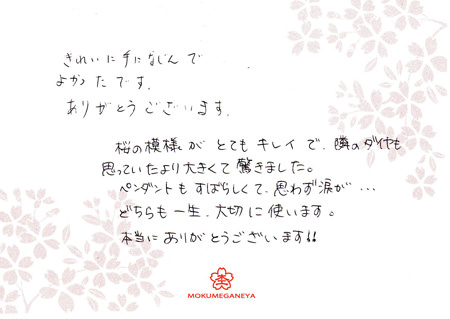 きれいに手になじんで
よかったです.
ありがとうございます.
桜の模様がとてもキレイで、隣のダイヤも
思っていたより大きくて驚きました。
ペンダントもすばらしくて、思わず涙が…
どちらも一生、大切に使います。
本当にありがとうございます!!
MOKUMEGANEYA